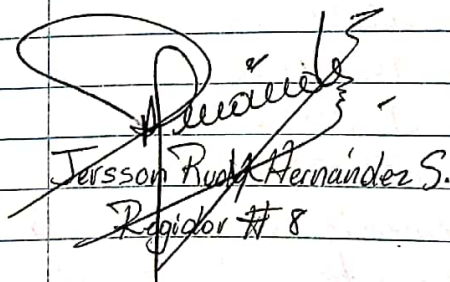 Jersson Rudy Hernández S.
Regidor # 8